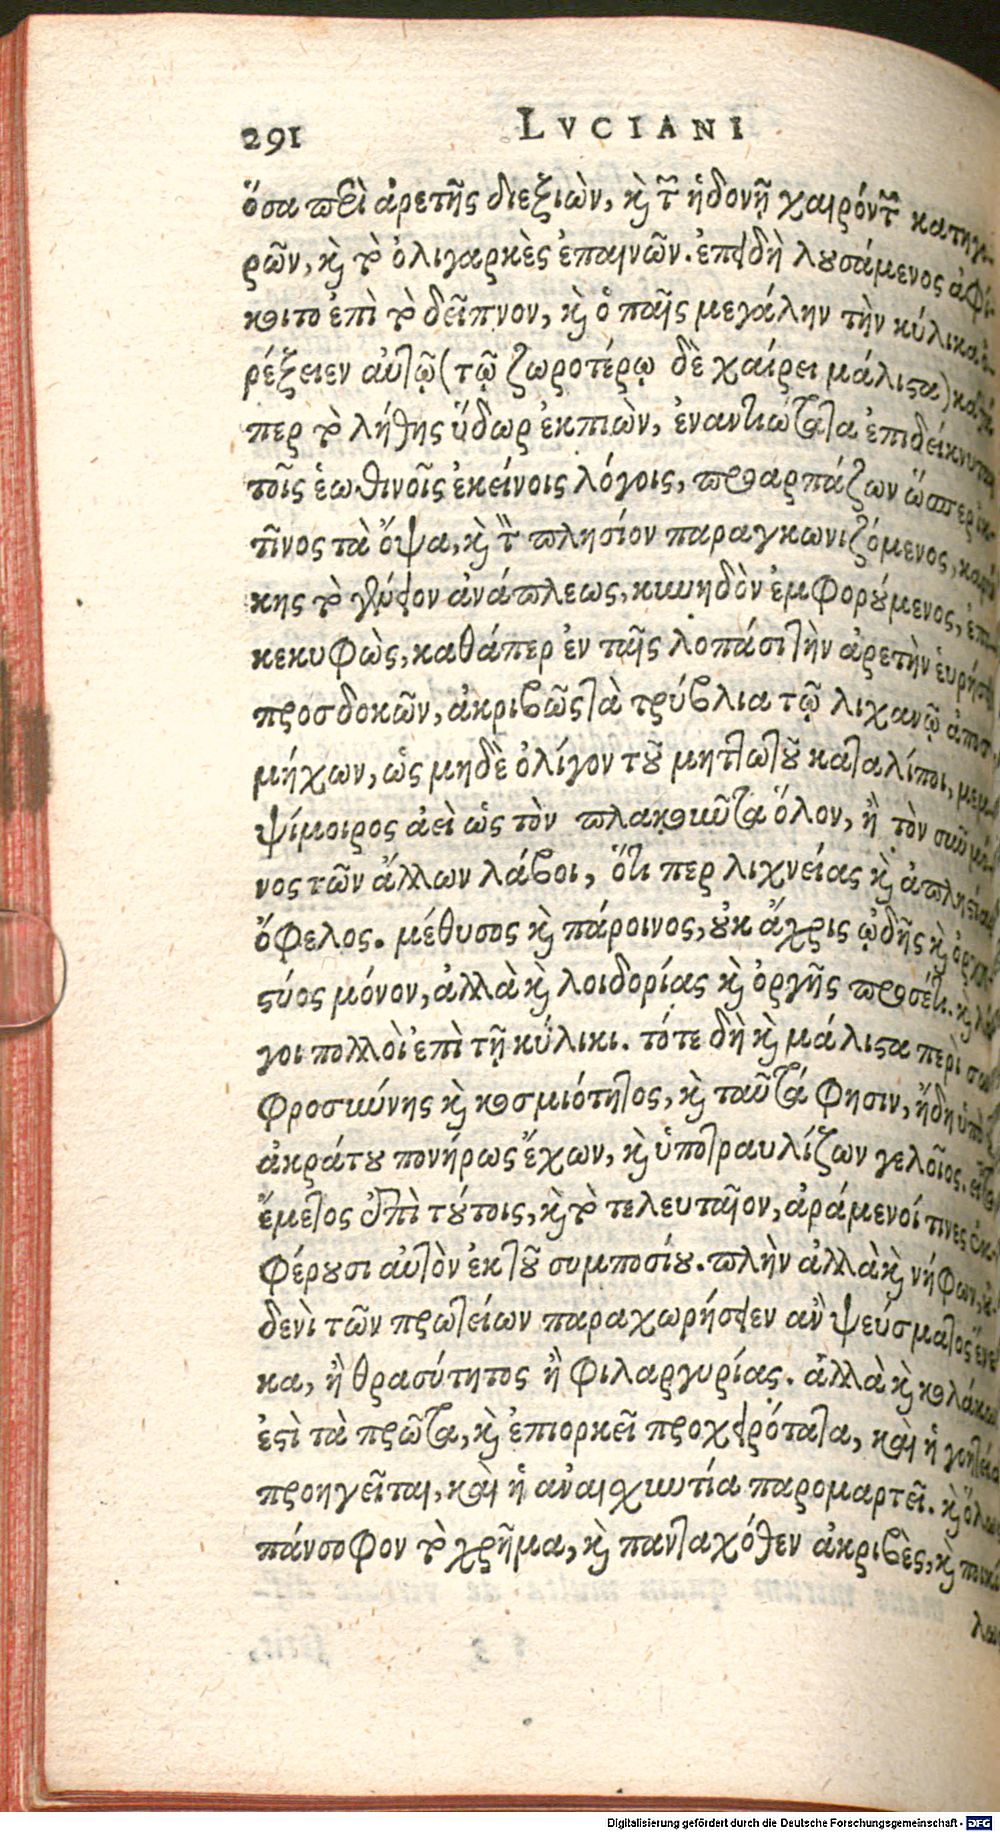 291 LVCIANI
ὅσα περὶ ἀρετῆς διεξιὼν, καὶ τῶν ἡδονῇ χαιρόντων κατηγο-
ρῶν, καὶ τὸ ὀλιγαρκὲς ἐπαινῶν. ἐπειδὴ λουσάμενος ἀφί-
κοιτο ἐπὶ τὸ δεῖπνον, καὶ ὁ παῖς μεγάλην τὴν κύλικα ὀ-
ρέξειεν αὐτῷ (τῷ ζωροτέρῳ δὲ χαίρει μάλιστα) καθά-
περ τὸ λήθης ὕδωρ ἐκπιὼν, ἐναντιώτατα ἐπιδείκνυται
τοῖς ἑωθινοῖς ἐκείνοις λόγοις, προαρπάζων ὥσπερ ἰκ-
τῖνος τὰ ὄψα, καὶ τὸν πλησίον παραγκωνιζόμενος, καρύ-
κης τὸ γένειον ἀνάπλεως, κυνηδὸν ἐμφορούμενος, ἐπι-
κεκυφὼς, καθάπερ ἐν ταῖς λοπάσι τὴν ἀρετὴν εὑρήσειν
προσδοκῶν, ἀκριβῶς τὰ τρύβλια τῷ λιχανῷ ἀποσ-
μήχων, ὡς μηδὲ ὀλίγον τοῦ μητλωτοῦ καταλίποι, μεμ-
ψίμοιρος ἀεὶ ὡς τὸν πλακοῦντα ὅλον, ἢ τὸν σῦν μό-
νος τῶν ἄλλων λάβοι, ὅτι περ λιχνείας καὶ ἀπληστίας
ὄφελος. μέθυσος καὶ πάροινος, οὐκ ἄχρις ᾠδῆς καὶ ὀρχη-
στύος μόνον, ἀλλὰ καὶ λοιδορίας καὶ ὀργῆς προσέτι. καὶ λό-
γοι πολλοὶ ἐπὶ τῇ κύλικι. τότε δὴ καὶ μάλιστα περὶ σω-
φροσύνης καὶ κοσμιότητος, καὶ ταῦτά φησιν, ἤδη ὑπὸ τοῦ
ἀκράτου πονήρως ἔχων, καὶ ὑποτραυλίζων γελοῖος. εἶτα
ἔμετος ἐπὶ τούτοις, καὶ τὸ τελευταῖον, ἀράμενοί τινες ἐκ-
φέρουσι αὐτὸν ἐκ τοῦ συμποσίου. πλὴν ἀλλὰ καὶ νήφων, οὐ-
δενὶ τῶν πρωτείων παραχωρήσειεν ἂν ψεύσματος ἕνε-
κα, ἢ θρασύτητος ἢ φιλαργυρίας. ἀλλὰ καὶ κολάκων
ἐστὶ τὰ πρῶτα, καὶ ἐπιορκεῖ προχειρότατα, καὶ ἡ γοητεία
προηγεῖται, καὶ ἡ ἀναισχυντία παρομαρτεῖ. καὶ ὅλως
πάνσοφον τὸ χρῆμα, καὶ πανταχόθεν ἀκριβὲς, καὶ ποικί-
λως
Digitalisierung gefördert durch die Deutsche Forschungsgemeinschaft - DFG